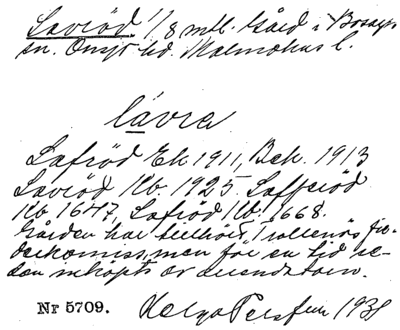 Laviöd 1/8 mtl. Gård i Bosarp
sn. Onsjö hd. Malmöhus l.
lávra
Lafröd Ek 1911, Bek. 1913
Laviöd Kb. 1925. Laffriöd
Kb 1647, Lafröd Kb. 1668.
Gården har tillhört Trollenäs fi-
deikomiss, men för en tid se-
dan inköpts av arrendatorn.
Nr 5709.
Helga Persson 1931